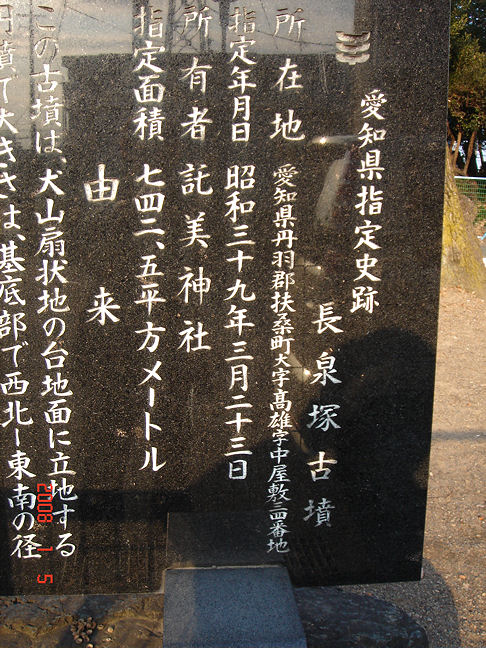 愛知県指定史跡
長泉塚古墳
所在地 愛知県丹羽郡扶桑町大字高雄字中屋敷三四番地
指定年月日 昭和三十九年三月二十三日
所有者 託美神社
指定面積 七四二、五平方メートル
由来
この古墳は、犬山扇状地の台地面に立地する
円墳で大きさは、基底部で西北ー東南の径
2008 1 5